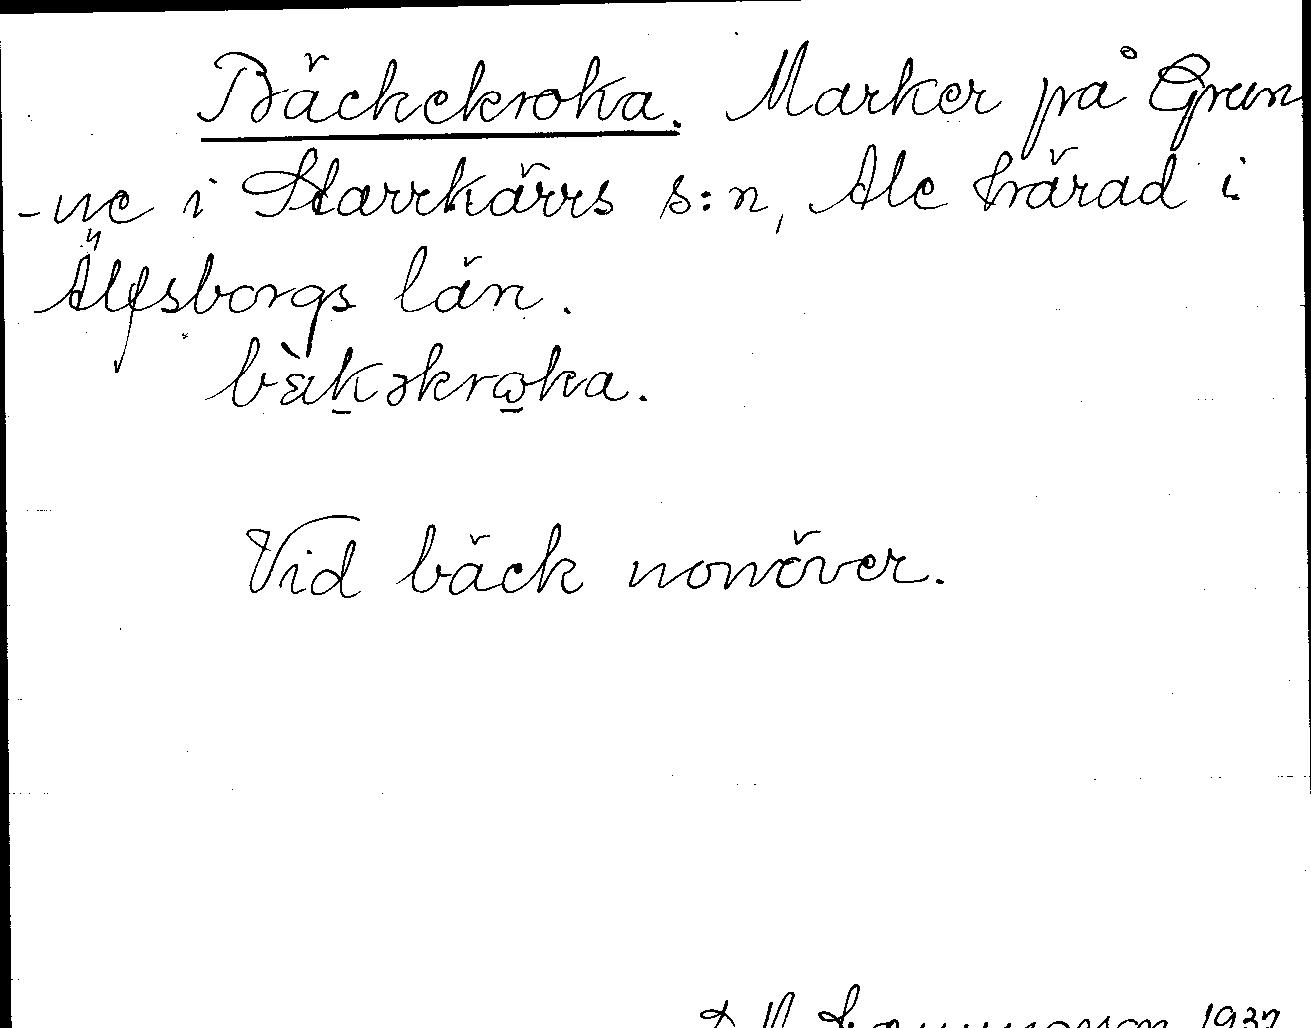 Bäckekroka. Marker på Grun
-ne i Starrkärrs s:n, Ale härad i
Älfsborgs län.
bæ̀kəkrωka.
Vid bäck norröver.
1937